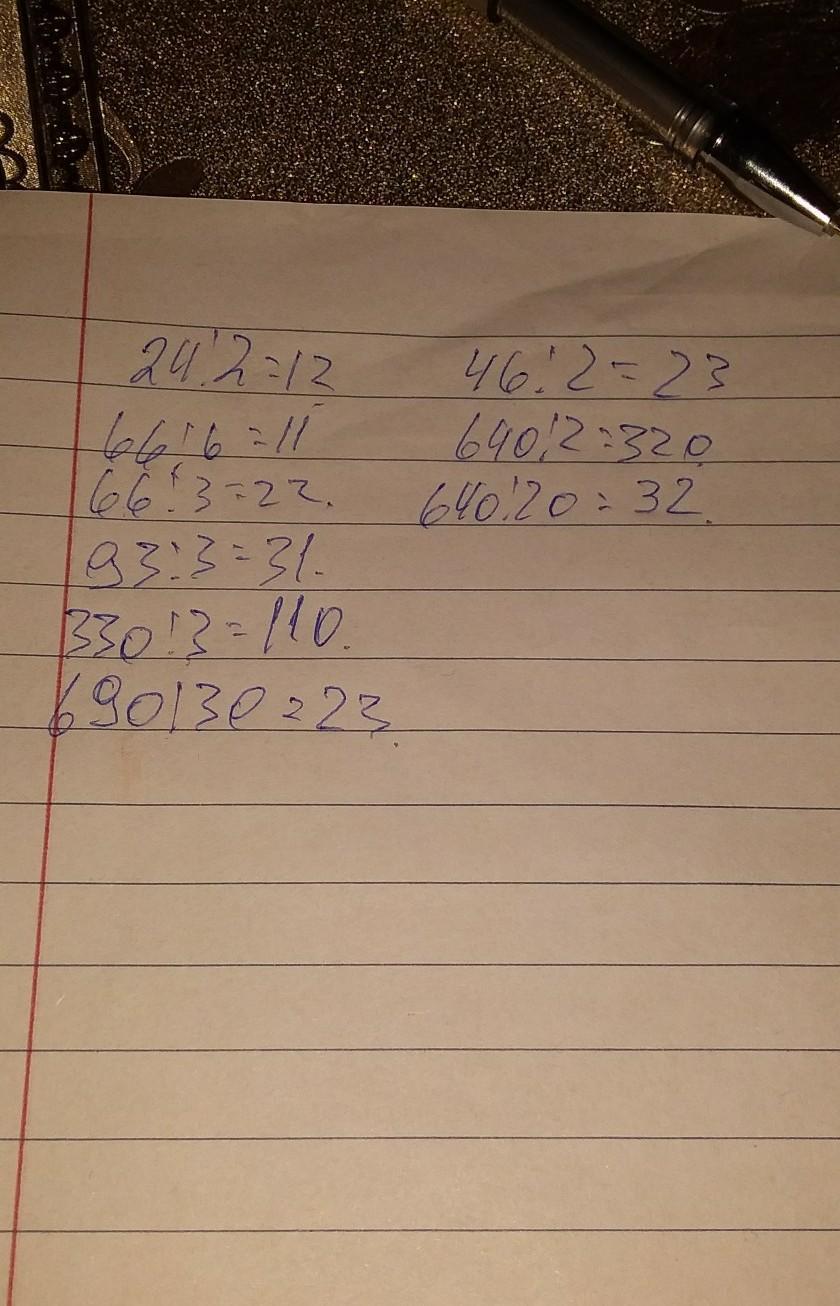 24:2=12
66:6=11
66:3=22.
93:3=31.
330:3=110.
690:30=23.
46:2=23
640:2=320.
640:20=32.